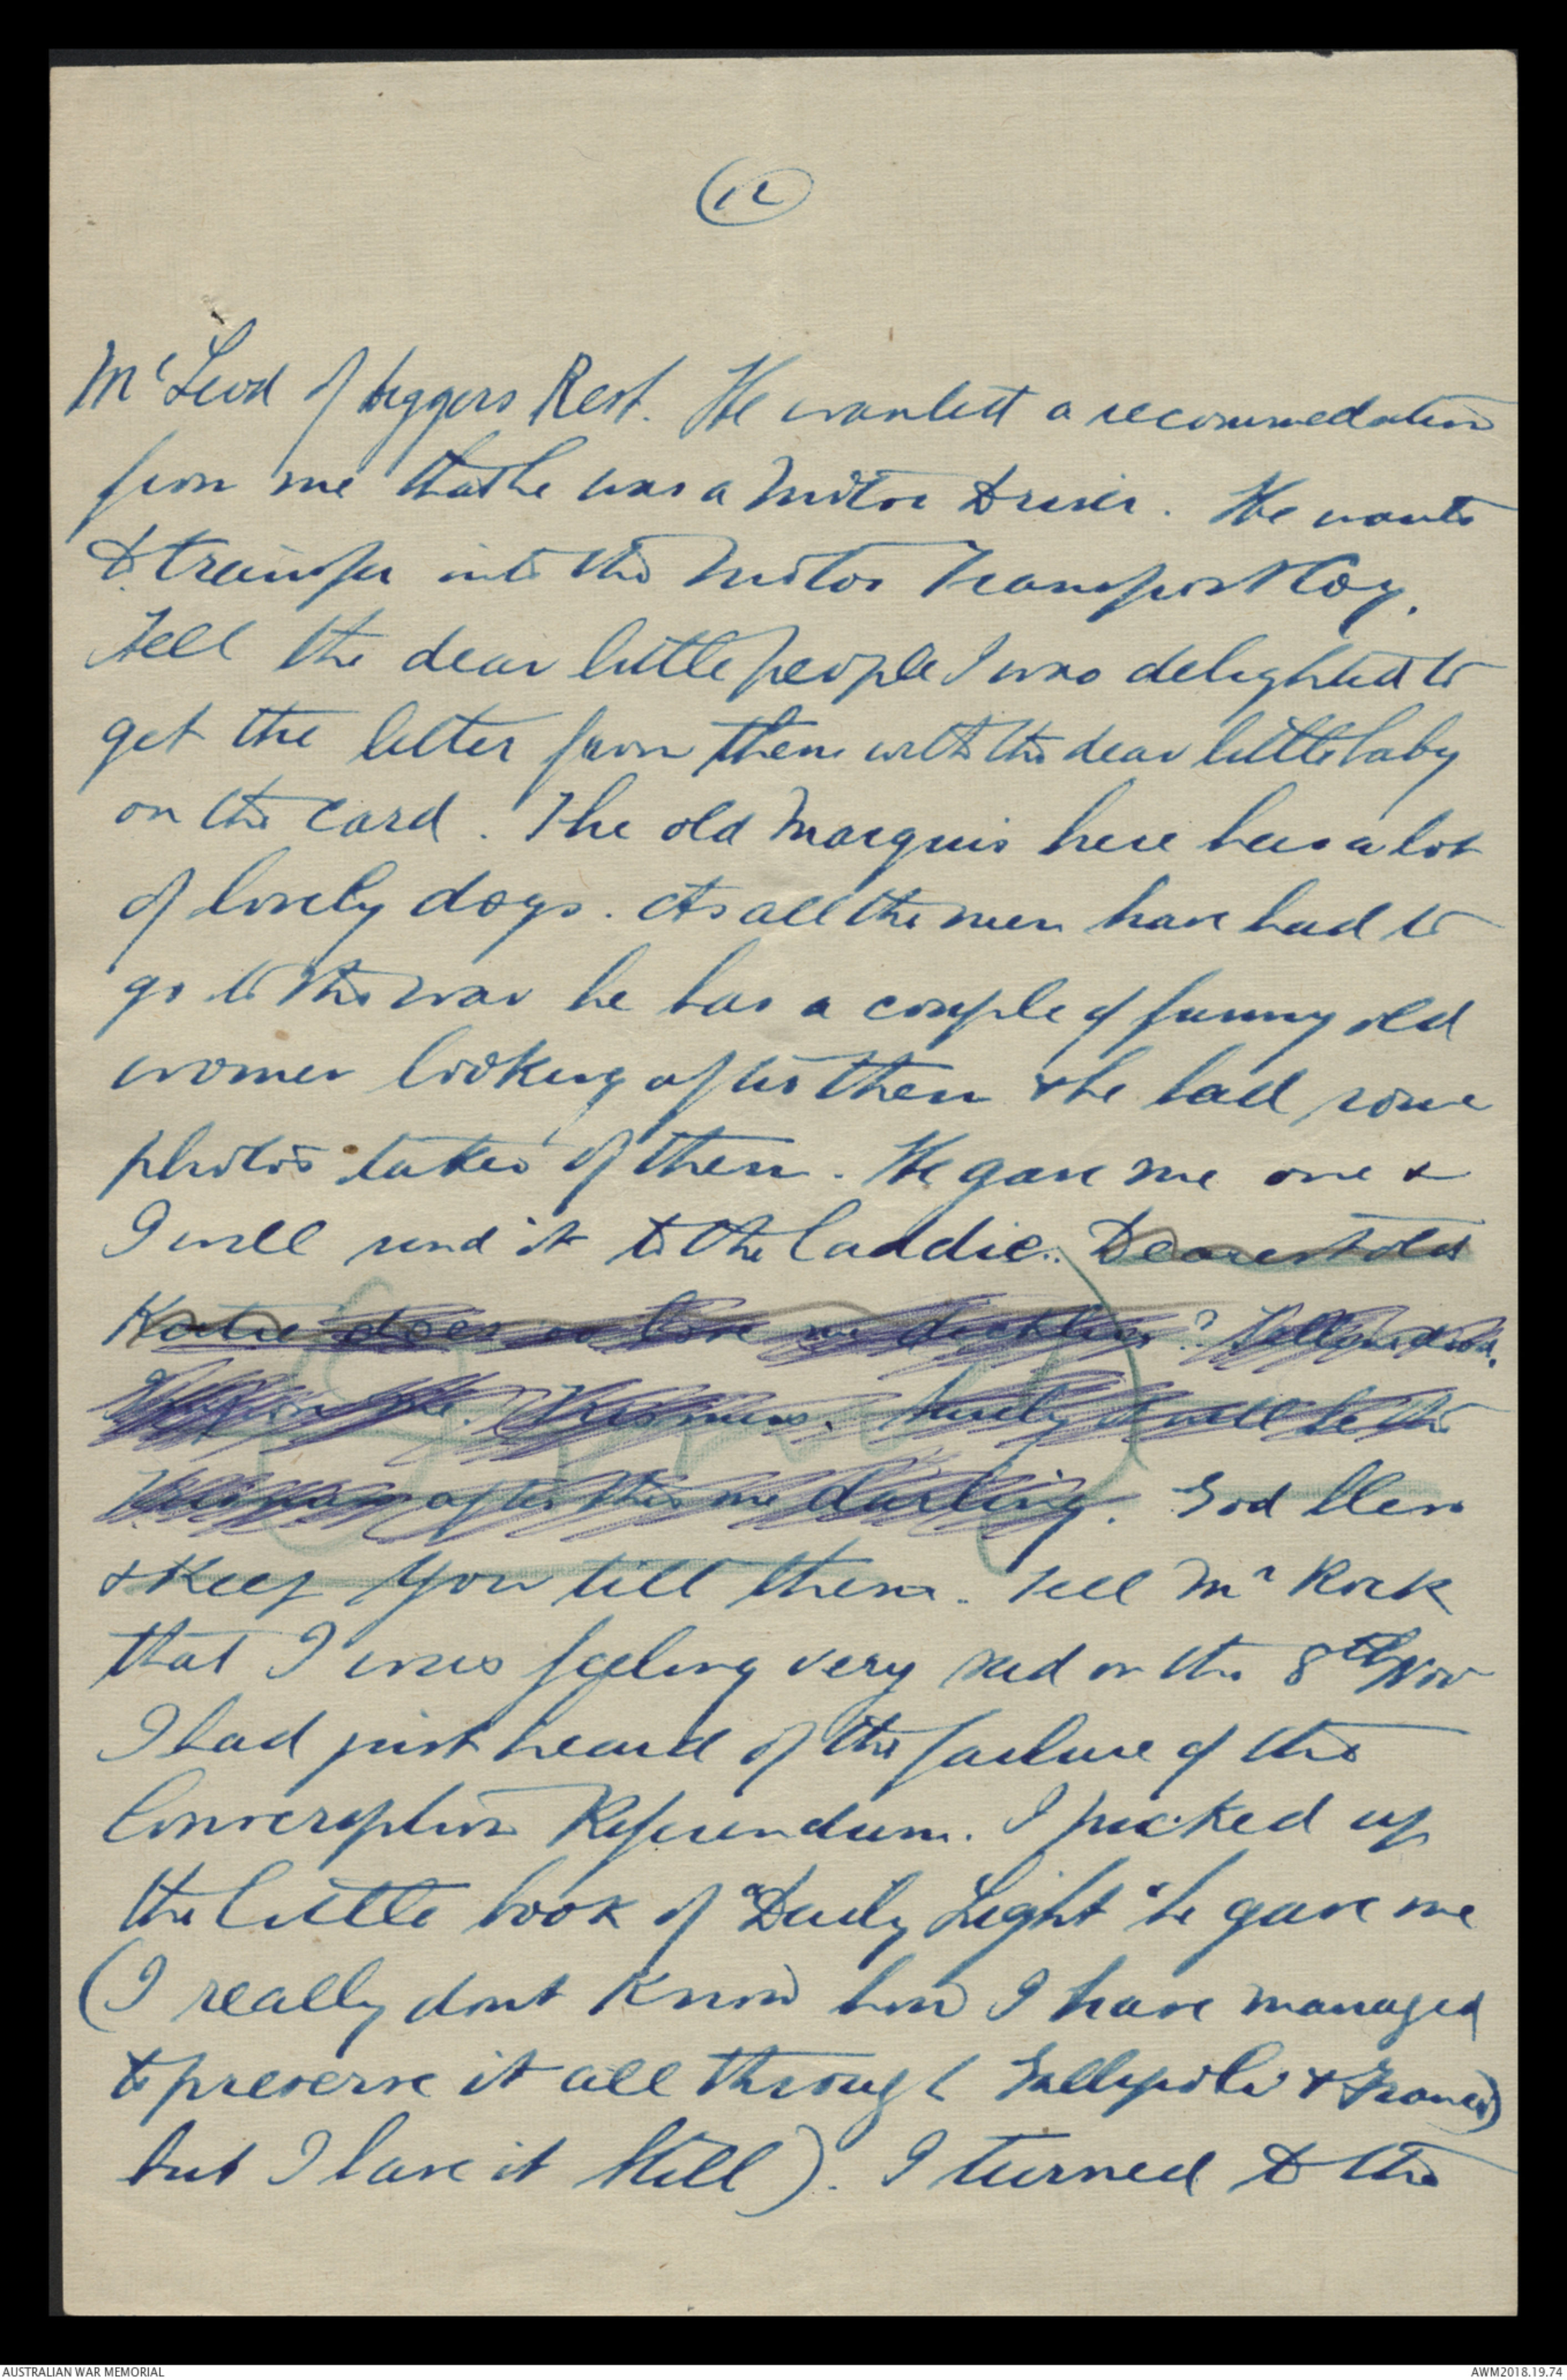 12
McLeod of Diggers Rest. He wanted a recommedation
from me that he was a Motor Driver. He wants
to transfer into the Motor Transport Coy.
Tell the dear little people I was delighted to
get the letter from them with the dear little baby
on the card. The old Marquis here has a lot
of lovely dogs. As all the men have had to
go to the war he has a couple of funny old
women looking after them & he had some
photos taken of them. He gave me one &
I will send it to the laddie. Dearest old
Katie does oo love me
Surely it will be the
after this me darling. God bless
& keep you till then. Tell Mr Rock
that I was feeling very sad on the 8th Nov
I had just heard of the failure of the
Conscription Referendum. I picked up
the little book of "Daily Light" he gave me
(I really dont know how I have managed
to preserve it all through Gallipoli & France)
but I have it still). I turned to the
AUSTRALIAN WAR MEMORIAL
AWM2018.19.74